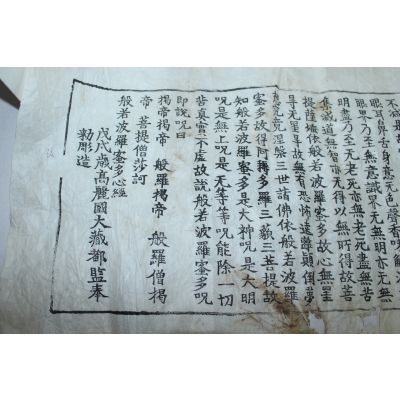 不減是故
眼耳鼻舌身意無色聲香味觸法
眼界乃至無意識界無無明亦無無
明盡乃至無老死亦無老死盡無苦
集滅道無智亦無得以無所得故菩
提薩埵依般若波羅蜜多故心無罣
㝵無罣㝵故無有恐怖遠離顛倒夢
想究竟涅槃三世諸佛依般若波羅
蜜多故得阿耨多羅三藐三菩提故
知般若波羅蜜多是大神呪是大明
呪是無上呪是無等等呪能除一切
苦真實不虛故說般若波羅蜜多呪
即說呪曰
揭帝揭帝 般羅揭帝 般羅僧揭
帝 菩提僧莎訶
般若波羅蜜多心經
戊戌歲高麗國大藏都監奉
勅彫造